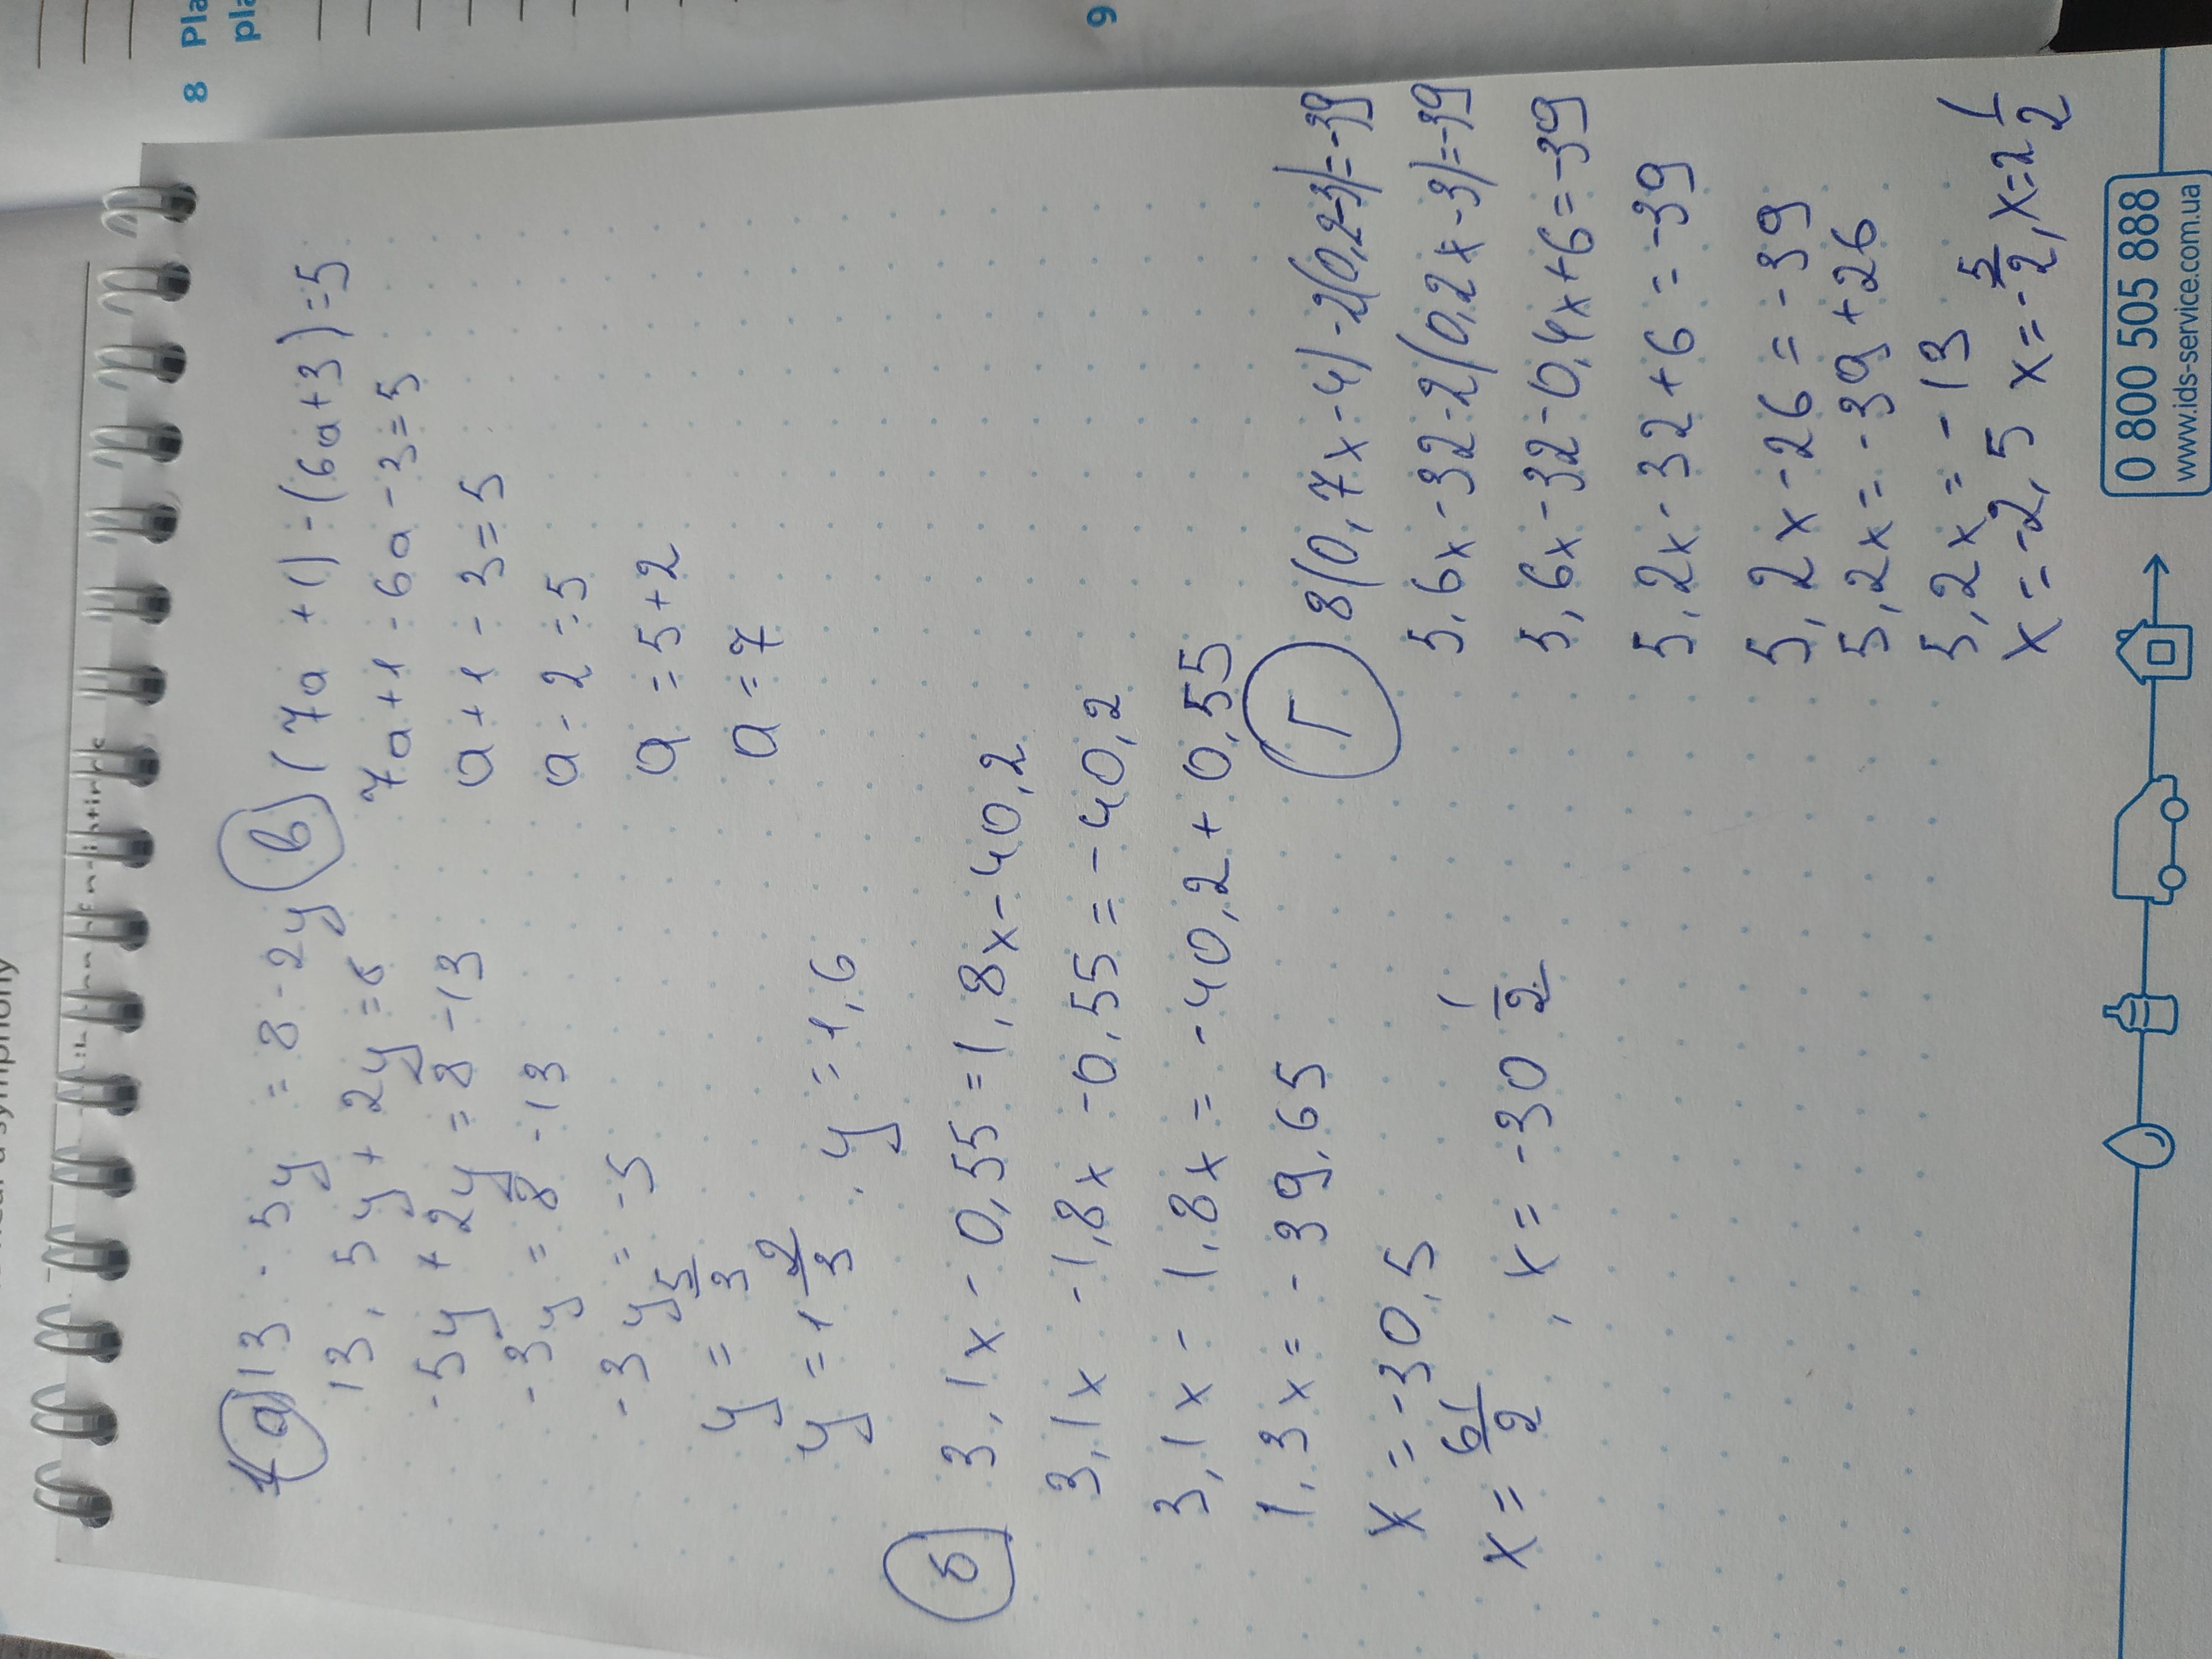 8 Pla
pla
9
1 а 13 - 5y = 8 - 2y
13, 5y + 2y = 8
-5y + 2y = 8 - 13
-3y = 8 - 13
-3y = -5
y = 5/3
y = 1 2/3 . y = 1,6
в (7a + 1) - (6a + 3) = 5
7a + 1 - 6a - 3 = 5
a + 1 - 3 = 5
a - 2 = 5
a = 5 + 2
a = 7
б 3,1x - 0,55 = 1,8x - 40,2
3,1x - 1,8x - 0,55 = -40,2
3,1x - 1,8x = -40,2 + 0,55
1,3x = -39,65
x = -30,5
x = 61/2 , x = -30 1/2
Г 8(0,7x - 4) - 2(0,2 - 3) = -39
5,6x - 32 - 2(0,2x - 3) = -39
5,6x - 32 - 0,4x + 6 = -39
5,2x - 32 + 6 = -39
5,2x - 26 = -39
5,2x = -39 + 26
5,2x = -13
x = -2,5 x = -5/2, x = 2 1/2
0 800 505 888
www.ids-service.com.ua